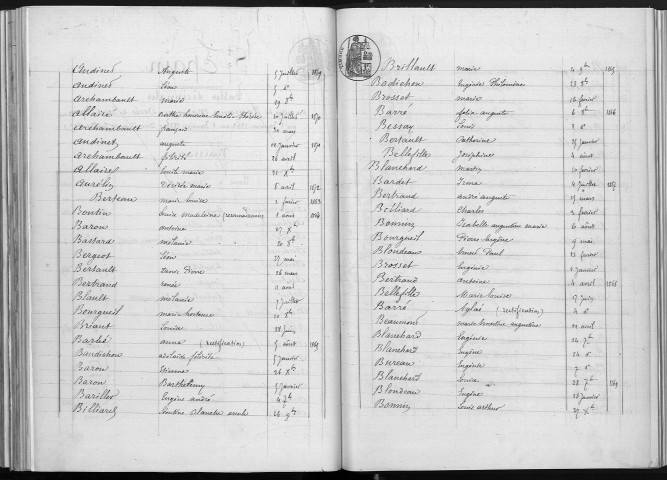 Andinet Auguste 5 Juillet 1869
Andinet Léon 5
Archambault Marie 29 8bre
Allaire 20 Juillet 1870
Archambault François 20 mars
Andinet Auguste 12 Janvier 1871
Archambault Félicité 26 avril
Allaire Louise Marie 21 Xbre
Aurélie Désirée Marie 8 avril 1872
Berteau Marie Louise 2 février 1863
Boutin Louise Madeleine (reconnaissance) 1 août 1864
Baron Antoine 27 Xbre
Bassard Mélanie 20 8bre
Bergeot Léon 27 mai
Bertault Louis Pierre 26 mars
Bertrand René 11 avril
Blault Mélanie 1 Juillet
Bourgueil Marie hortense 10 8bre
Briant Louise 28 Juin
Barbié Anna (rectification) 5 août 1865
Baudichon Adélaïde félicité 5 Janvier
Baron Etienne 26 Xbre
Baron Barthélemy 5 Janvier
Bariller Eugène André 4 7bre
Billiard 26 9bre
Brillault Marie 2 9bre 1865
Badichon Eugénie Philomène 28 8bre
Brosset Marie 12 février
Barré félix Auguste 6 8bre 1866
Bessay Louis 8
Bertault Catherine 25 Janvier
Bellefille Joséphine 4 août
Blanchard Martin 10 février
Bardet Irma 4 Juillet 1867
Bertrand André Auguste 15 mars
Béliard Charles 2 février
Bonnin Isabelle Augustine Marie 6 août
Bourgueil Pierre Eugène 9 mai
Blondeau Aimé Paul 13 février
Brosset Eugénie 1 Janvier
Bertrand Antoine 4 avril 1868
Bellefille Marie Louise 9 Juin
Barré Aglaé (rectification) 4
Beaumont Marie Augustine 20 avril
Blanchard Eugénie 24 7bre
Blanchard Eugène 24
Bureau Eugénie 7
Blanchard Louise 28 7bre 1869
Blondeau Eugène 28 Janvier
Bonnin Louis Arthur 27 Xbre